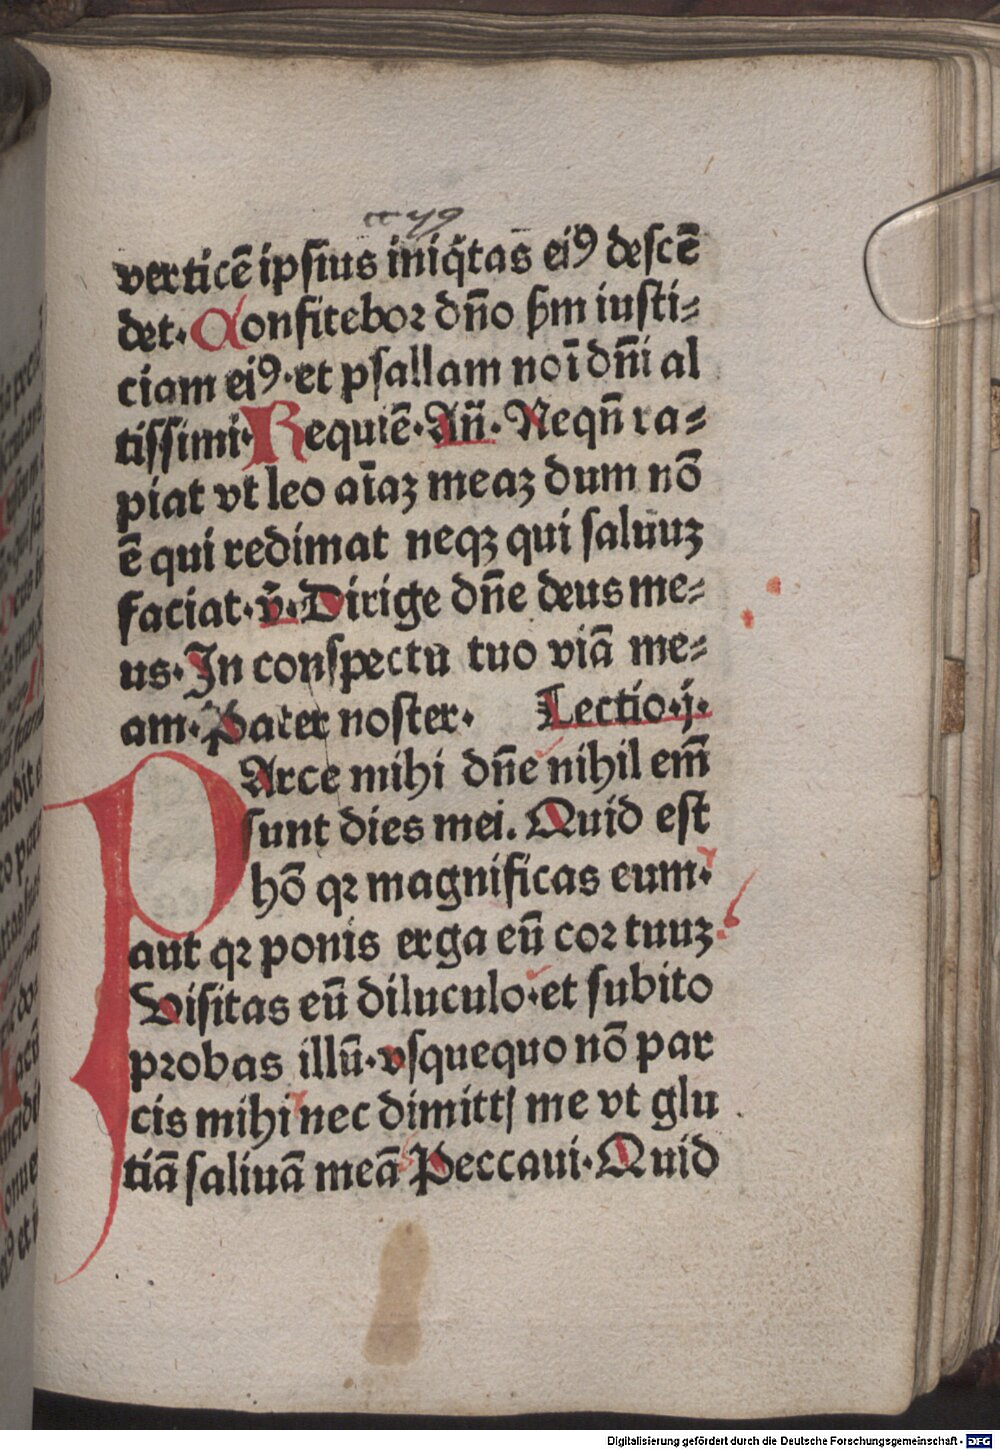 verticē ipsius iniq̃tas ei⁹ descē
det. Confitebor dño ẜm iusti⸗
ciam ei⁹. et psallam noī dñi al
tissimi. Requiē. Añ. Neqñ ra⸗
piat vt leo aīaꝫ meaꝫ dum nō
ē qui redimat neqꝫ qui saluuꝫ
faciat. v̄. Dirige dñe deus me⸗
us. In conspectu tuo viā me⸗
am. Pater noster. Lectio. j.
Parce mihi dñe nihil em̄
sunt dies mei. Quid est
hō qꝛ magnificas eum.
aut qꝛ ponis erga eū cor tuuꝫ
Visitas eū diluculo. et subito
probas illū. vsquequo nō par
cis mihi nec dimittꝭ me vt glu
tiā saliuā meā Peccaui. Quid
Digitalisierung gefördert durch die Deutsche Forschungsgemeinschaft - DFG